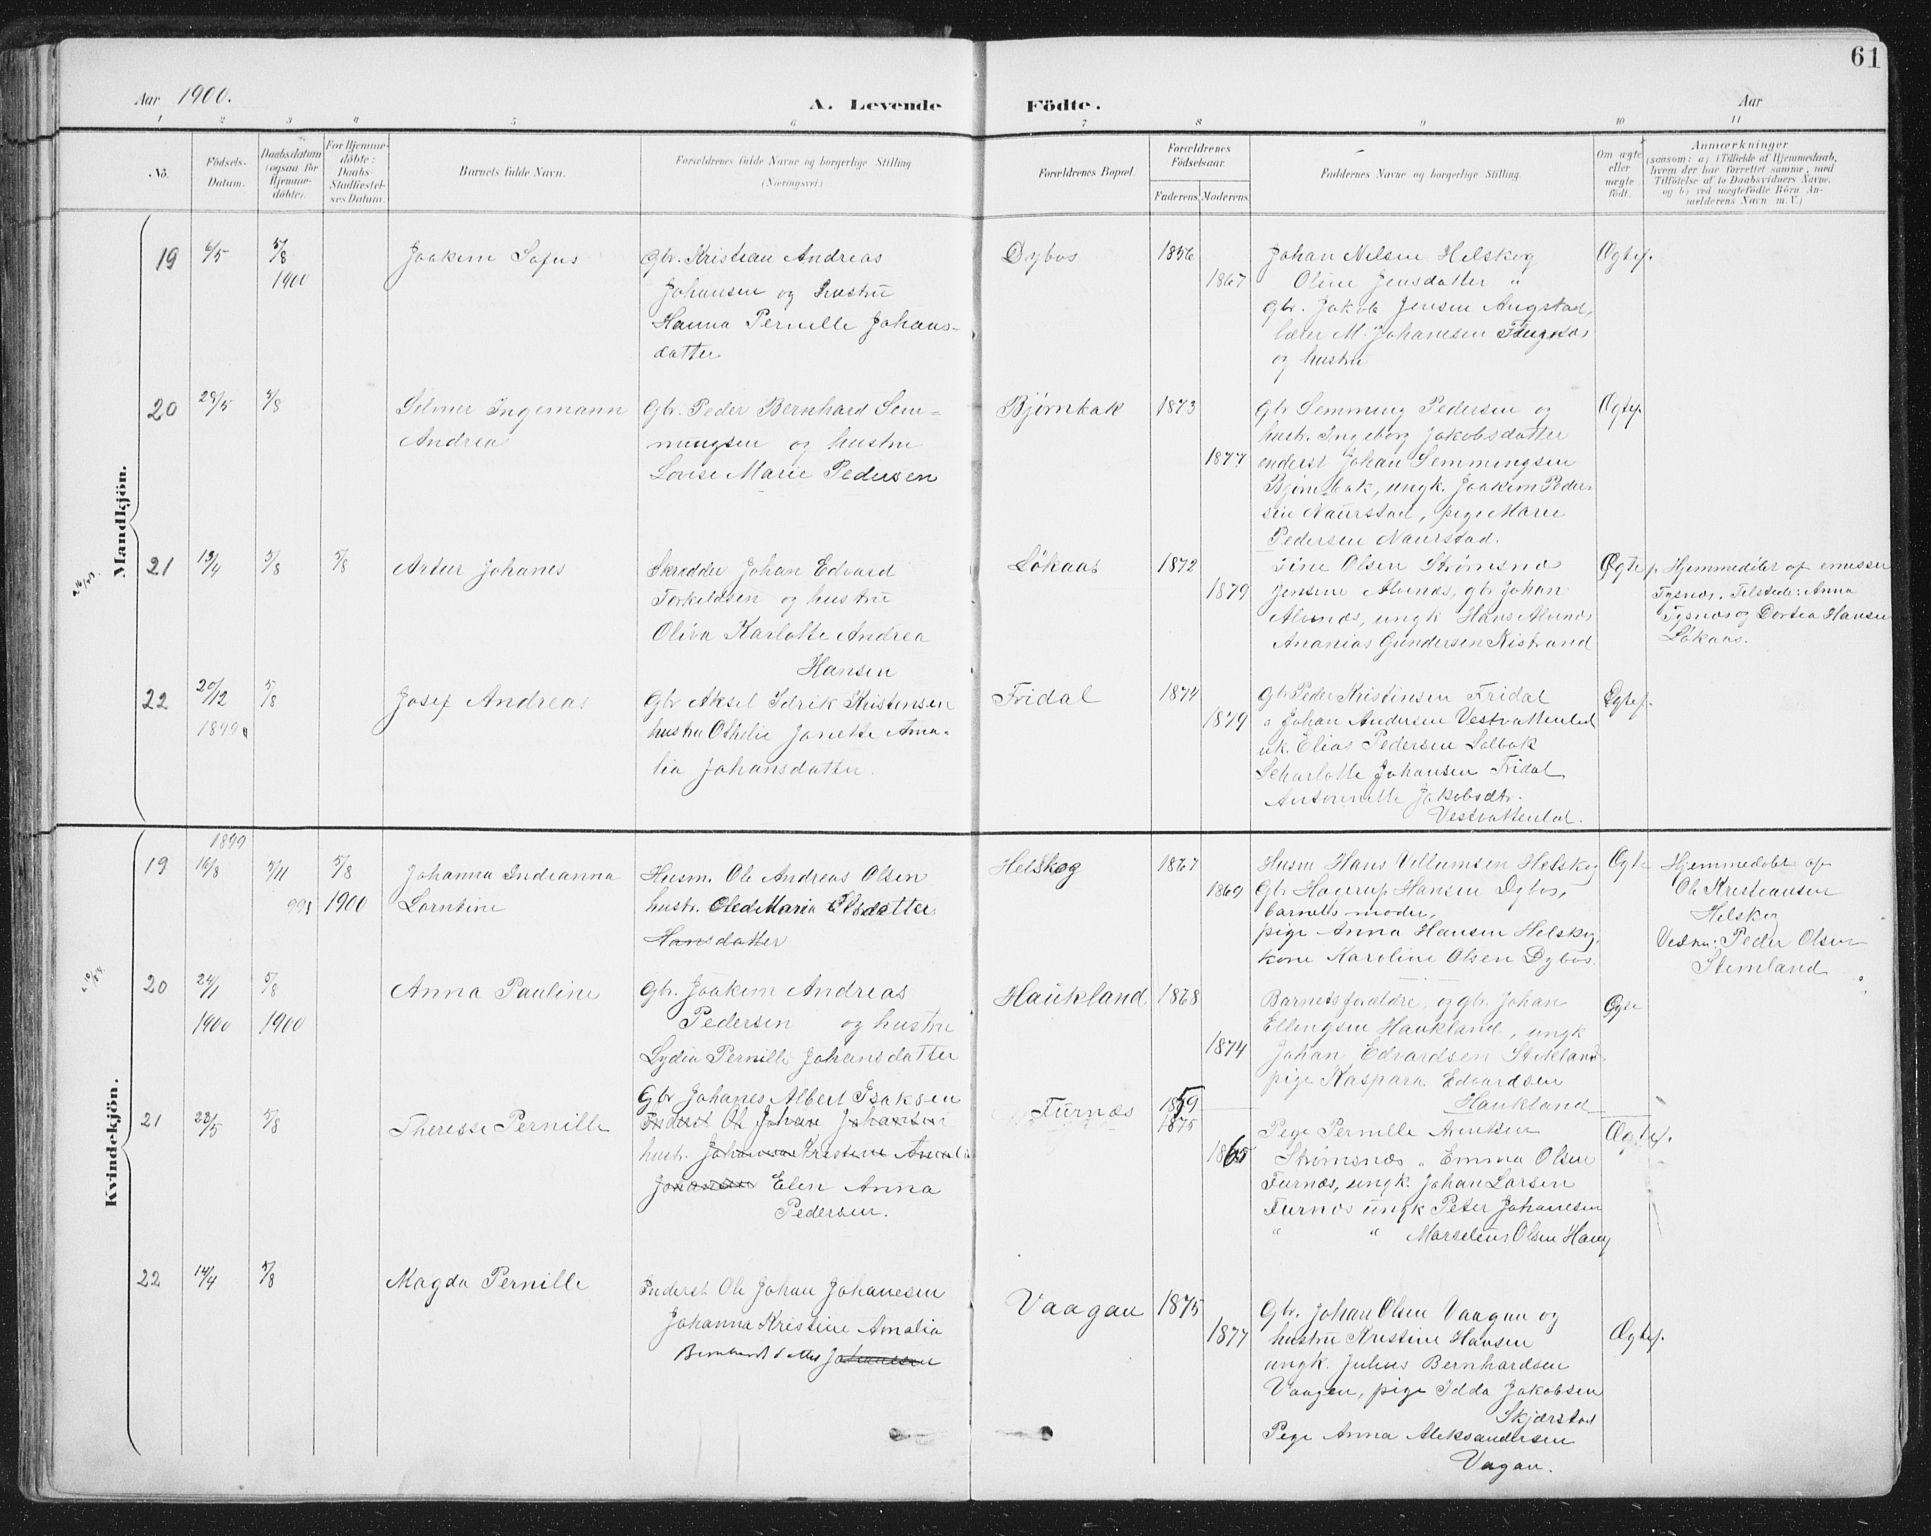 61
Aar 1900.
A. Levende
Födte.
Aar
1 2 3 4 5 6 7 8 9 10 11
No.
Födsels-
Datum.
Daabsdatum
(ogsaa for
Hjemme-
döbte).
For Hjemme-
döbte:
Daabs-
Stadfæstel-
ses Datum.
Barnets fulde Navn.
Forældrenes fulde Navne og borgerlige Stilling
(Næringsvei)
Forældrenes Bopæl.
Forældrenes
Födselsaar.
Faderens
Moderens
Faddernes Navne og borgerlige Stilling.
Om ægte
eller
uægte
födt.
Anmærkninger
(saasom: a) i Tilfælde af Hjemmedaab,
hvem der har forrettet samme, med
Tilföielse af to Daabsvidners Navne,
og b) ved uægtefödte Börn An-
melderens Navn m. V.)
Mandkjön.
19 6/5 5/8
1900
Joakim Sofus
Gbr. Kristian Andreas
Johansen og hustru
Hanna Pernille Johans-
datter
Dybos
1856
1867
Johan Nilsen Helskog
Oline Jensdatter "
Gbr. Jakob Jensen Augstad,
M. Johannesen
og hustru
Ægtef.
20 28/5 5/8
Selmer Ingemann
Andrea
Gbr. Peder Bernhard Sem-
mingsen og hustru
Lovise Marie Pedersen
Bjørnbak
1873
1877
Gbr Semming Pedersen og
hustr. Ingeborg Jakobsdatter
enderst Johan Semmingsen
Bjørnbak, ungk. Joakim Peder-
sen Naurstad, pige Marie
Pedersen Naurstad.
Ægtef.
21 13/4 5/8 5/8
Artur Johanes
Skrædder Johan Edvard
Torkildsen og hustru
Oliva Karlotte Andrea
Hansen
Løkaas
1872
1879
Tine Olsen Strømsnes
Jensine Alvnæs, gbr Johan
Alvnæs, ungk Hans Alvnæs
Ananias Gundersen Nistrand
Ægtef.
Hjemmedøbt af
Tysnæs. Tilstede: Anna
Tysnæs og Dortea Hansen
Løkaas.
22 20/12 5/8
1899
Josef Andreas
Gbr Aksel Idrik Kristensen
hustru Othelie Janette Ama-
lia Johansdatter.
Fridal
1874
1879
Gbr Peder Kristensen Fridal
Johan Andersen Vestvattenlad
uk. Elias Pedersen Solbak
Scharlotte Johansen Fridal
Antonnette Jakobsdtr.
Vestvattenlad.
Ægtef.
Kvindekjön.
1899
19 16/8 5/11 5/8
99 1900
Johanna Indianna
Lorntine
Husm. Ole Andreas Olsen
hustr. Oled Maria Olsdatter
Hansdatter
Helskog
1867
1869
Husm Hans Villumsen Helskog
Gbr Hagerup Hansen Dybos,
barnets moder,
pige Anna Hansen Helskog,
kone Karoline Olsen Dybos
Ægte
Hjemmedøbt af
Ole Kristiansen
Helskog
Vidne: Peder Olsen
Stemland
20 24/1 5/8
1900 1900
Anna Pauline
Gbr. Joakim Andreas
Pedersen og hustru
Lydia Pernille Johansdatter
Haukland
1868
1874
Barnets forældre, og gbr. Johan
Ellingsen Haukland, ungk
Johan Edvardsen Stokland
pige Kaspara Edvardsen
Haukland
Ægte
21 28/5 5/8
Theresse Pernille
Gbr Johanes Albert Isaksen
Inderst Ole Johan Johansen
hustr. Johanna Kristine Amalia
Johansen Elen Anna
Pedersen.
Furnæs
1859
1875
1865
Pege Pernille Arentsen
Strømsnæs " Emma Olsen
Furnæs, ungk. Johan Larsen
Furnæs ungk Peter Johanesen
" " Marselius Olsen Haug
Ægtef.
22 14/4 5/8
Magda Pernille
Inderst Ole Johan Johanesen
Johanna Kristine Amalia
Bernhardtsdatter Johanesen
Vaagan
1875
1877
Gbr. Johan Olsen Vaagan og
hustru Kristine Hansen
ungk. Julius Bernhardsen
Vaagan, pige Idda Jakobsen
Skjærstad
Pege Anna Aleksandersen
Vagan.
Ægtef.